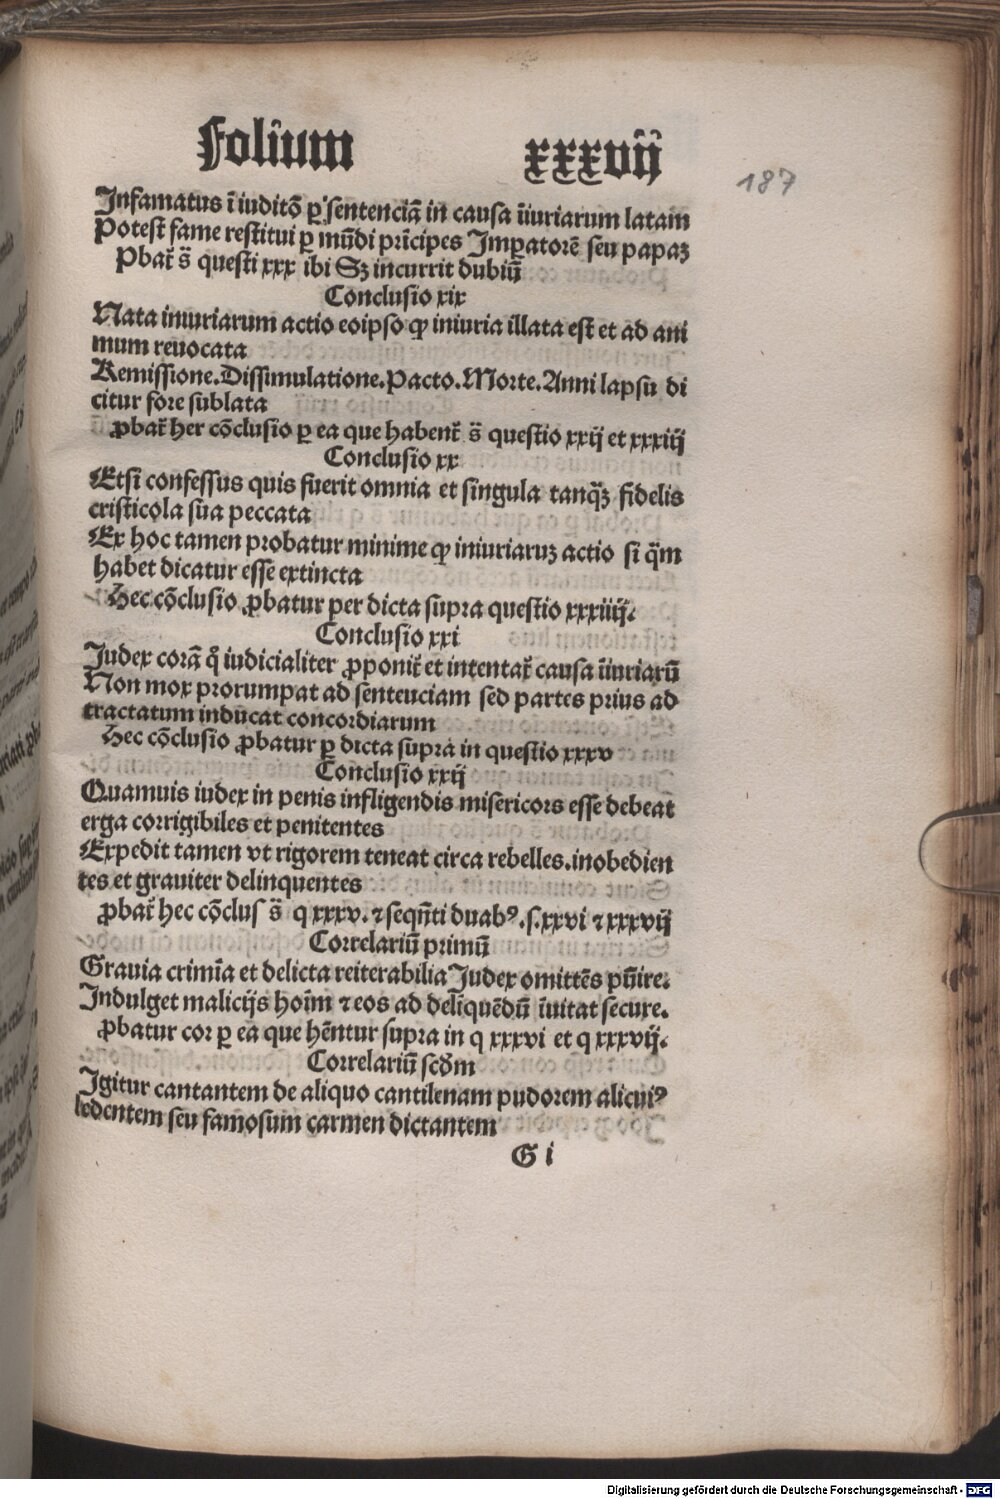 Folium xxxvij
187
Infamatus ī iuditō ꝑ sentenciā in causa iīuriarum latam
Potest fame restitui ꝑ mūdi prīcipes Imꝑatorē seu papaꝫ
Pbat̄ s̄ questi xxx ibi Sꝫ incurrit dubiū
Conclusio xix
Nata iniuriarum actio eoipso ꝙ iniuria illata est et ad ani
mum reuocata
Remissione.Dissimulatione.Pacto.Morte.Anni lapsu di
citur fore sublata
ꝓbat̄ her cōclusio ꝑ ea que habent̄ s̄ questio xxij et xxxiij
Conclusio xx
Etsi confessus quis fuerit omnia et singula tanqꝫ̄ fidelis
cristicola sua peccata
Ex hoc tamen probatur minime ꝙ iniuriaruꝫ actio si q̄m
habet dicatur esse extincta
Hec cōclusio ꝓbatur per dicta supra questio xxxiiij.
Conclusio xxi
Judex corā q̊ iudicialiter ꝓponit̄ et intentat̄ causa iīuriarū
Non mox prorumpat ad sentenciam sed partes prius ad
tractatum inducat concordiarum
Hec cōclusio ꝓbatur ꝑ dicta supra in questio xxxv
Conclusio xxij
Quamuis iudex in penis infligendis misericors esse debeat
erga corrigibiles et penitentes
Expedit tamen vt rigorem teneat circa rebelles.inobedien
tes et grauiter delinquentes
ꝓbat̄ hec cōclus s̄ q xxxv. ⁊ seqn̄ti duabꝰ.s.xxvi ⁊ xxxvij
Correlariū primū
Grauia crimīa et delicta reiterabilia Judex omittēs pūire.
Indulget malicijs hoīm ⁊ eos ad delīquēdū īuitat secure.
ꝓbatur cor ꝑ ea que hēntur supra in q xxxvi et q xxxvij.
Correlariū scd̄m
Igitur cantantem de aliquo cantilenam pudorem alicuiꝰ
ledentem seu famosum carmen dictantem
G i
Digitalisierung gefördert durch die Deutsche Forschungsgemeinschaft - DFG